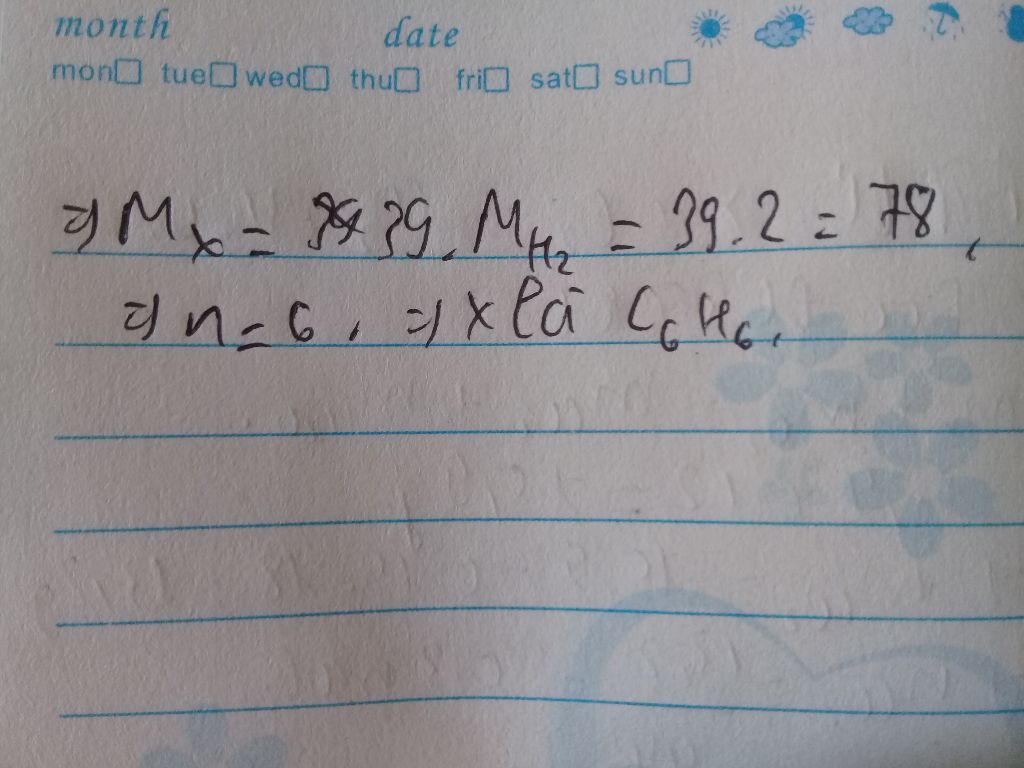 month date
mon□ tue□ wed□ thu□ fri□ sat□ sun□
⇒ Mx = 39. M H₂ = 39.2 = 78,
⇒ n = 6, ⇒ X là C₆H₆.